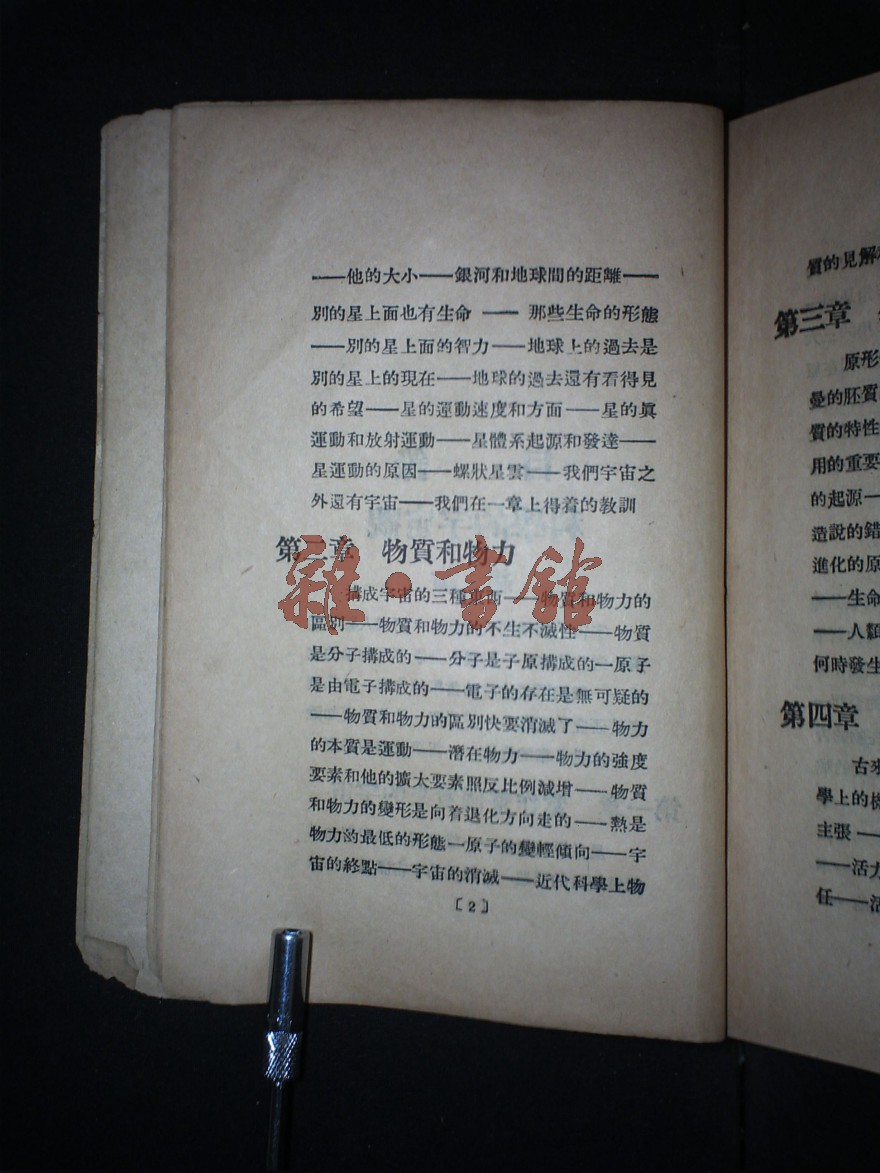 ——他的大小——銀河和地球間的距離——
別的星上面也有生命——那些生命的形態
——別的星上面的智力——地球上的過去是
別的星上的現在——地球的過去還有看得見
的希望——星的運動速度和方面——星的眞
運動和放射運動——星體系起源和發達——
星運動的原因——螺狀星雲——我們宇宙之
外還有宇宙——我們在一章上得着的教訓
第二章 物質和物力
構成宇宙的三種東西——物質和物力的
區別——物質和物力的不生不滅性——物質
是分子構成的——分子是子原構成的—原子
是由電子構成的——電子的存在是無可疑的
——物質和物力的區別快要消滅了——物力
的本質是運動——潛在物力——物力的強度
要素和他的擴大要素照反比例減增——物質
和物力的變形是向着退化方向走的——熱是
物力的最低的形態—原子的變輕傾向——宇
宙的終點——宇宙的消滅——近代科學上物
〔2〕
質的見解
第三章
原形
曼的胚質
質的特性
用的重要
的起源—
造說的錯
進化的原
——生命
——人類
何時發生
第四章
古來
學上的
主張—
——活力
任——活
雜·書館